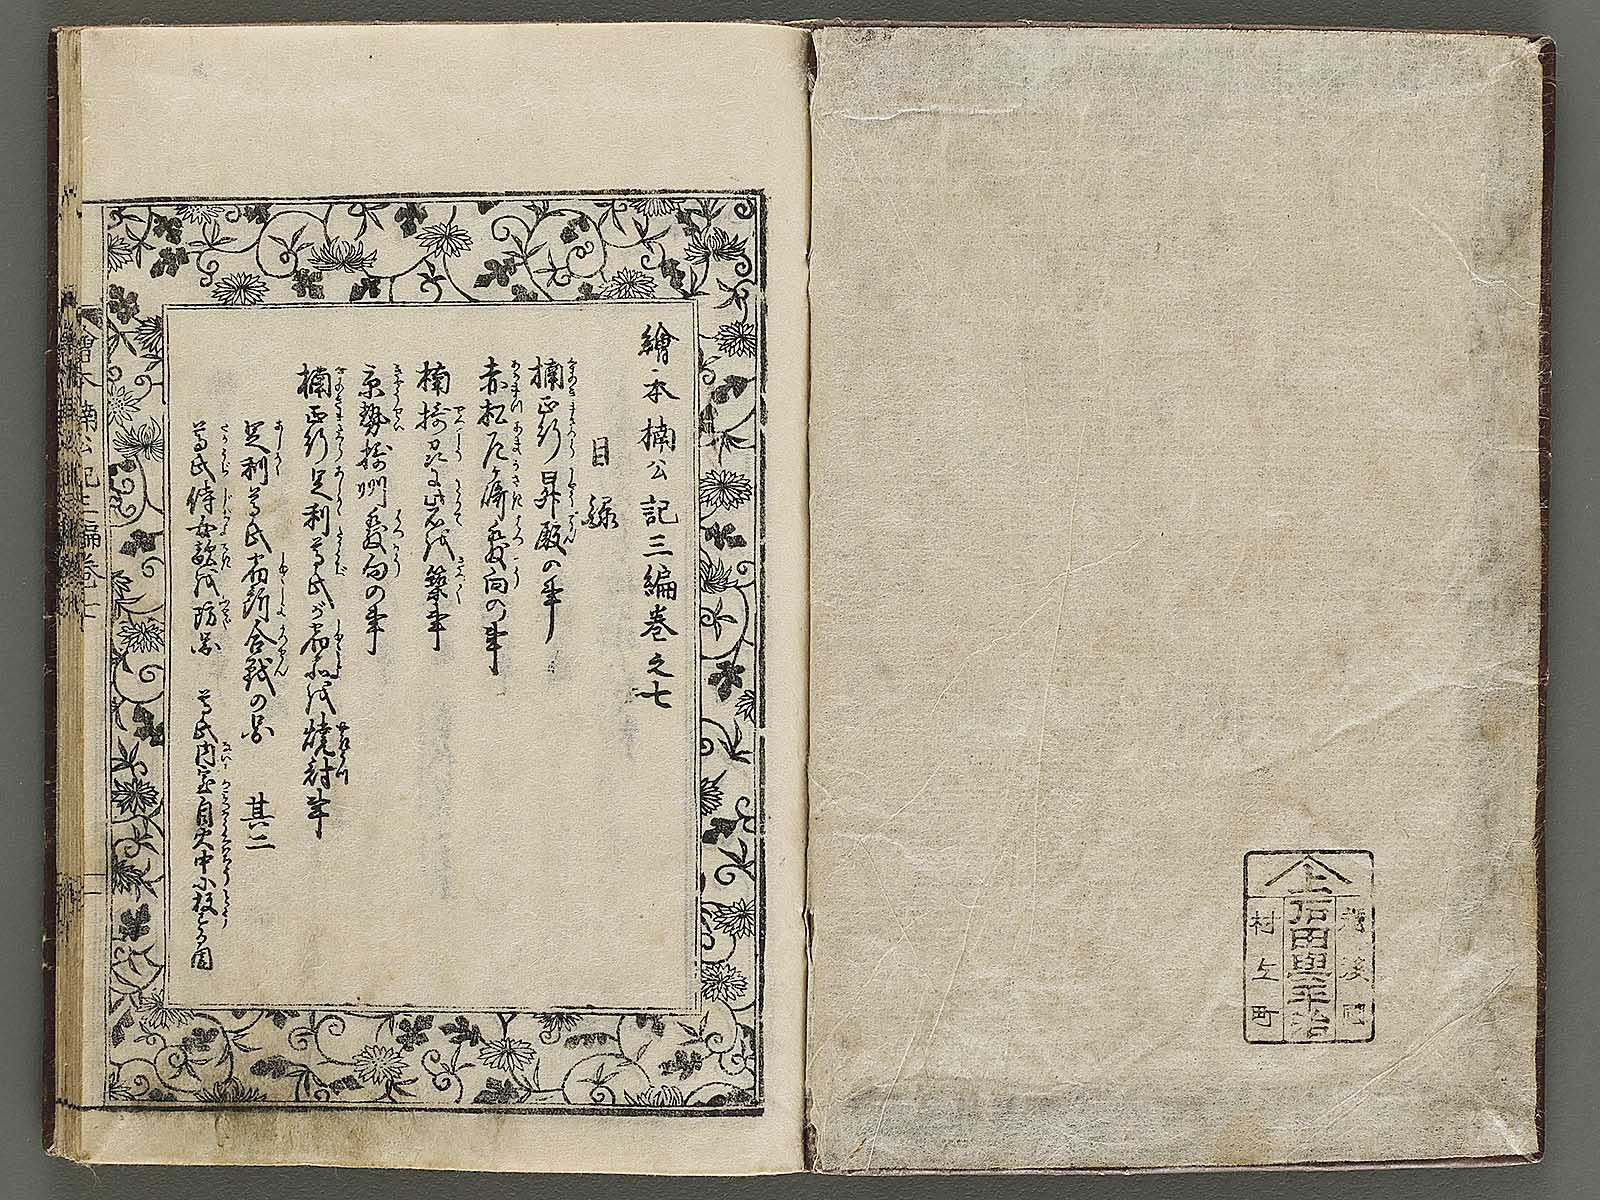 繪本楠公記三編巻之七
目録
楠正行昇殿の事
赤松尼崎発向の事
楠摂刕に砦を築事
京勢摂州発向の事
楠正行足利尊氏が宿所を焼討事
足利尊氏宿所合戦の図 其二
尊氏侍女敵を防図 尊氏内室自火中小殺する図
繪本楠公記三編巻七
上
石田與平治
村上町